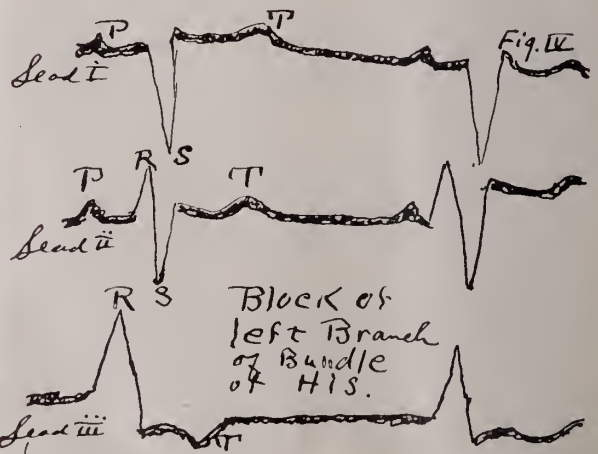 P
T
Fig. IV
Lead i
S
P
R
T
Lead ii
R S
Block of
left Branch
of Bundle
of HIS.
Lead iii
T